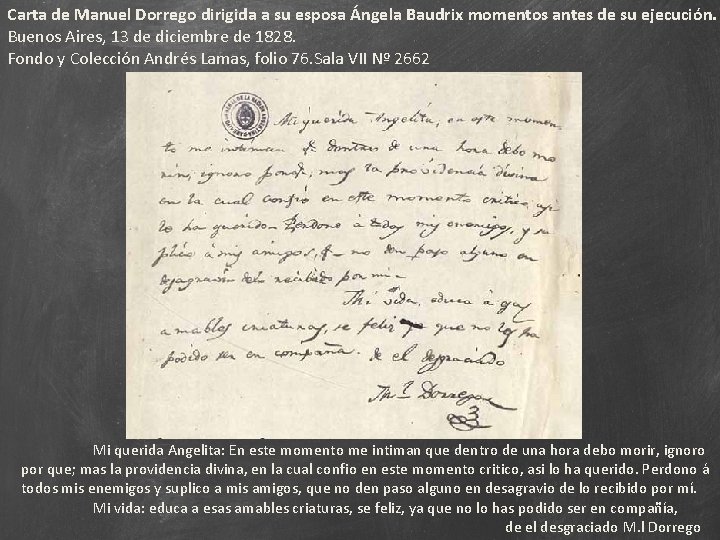 Carta de Manuel Dorrego dirigida a su esposa Ángela Baudrix momentos antes de su ejecución.
Buenos Aires, 13 de diciembre de 1828.
Fondo y Colección Andrés Lamas, folio 76. Sala VII Nº 2662
Mi querida Angelita, en este momen
to me intiman q.e dentro de una hora debo mo
rir; ignoro porq.e; mas la providencia divina
en la cual confio en este momento critico, asi
lo ha querido. Perdono á todos mis enemigos, y su
plico á mis amigos, q.e no den paso alguno en
desagravio de lo recibido por mi.
Mi vida, educa á esas
amables criaturas, se feliz, ya que no lo has
podido ser en compañia de el desgraciado
M.l Dorrego
Mi querida Angelita: En este momento me intiman que dentro de una hora debo morir, ignoro
por que; mas la providencia divina, en la cual confio en este momento critico, asi lo ha querido. Perdono á
todos mis enemigos y suplico a mis amigos, que no den paso alguno en desagravio de lo recibido por mí.
Mi vida: educa a esas amables criaturas, se feliz, ya que no lo has podido ser en compañía,
de el desgraciado M. l Dorrego